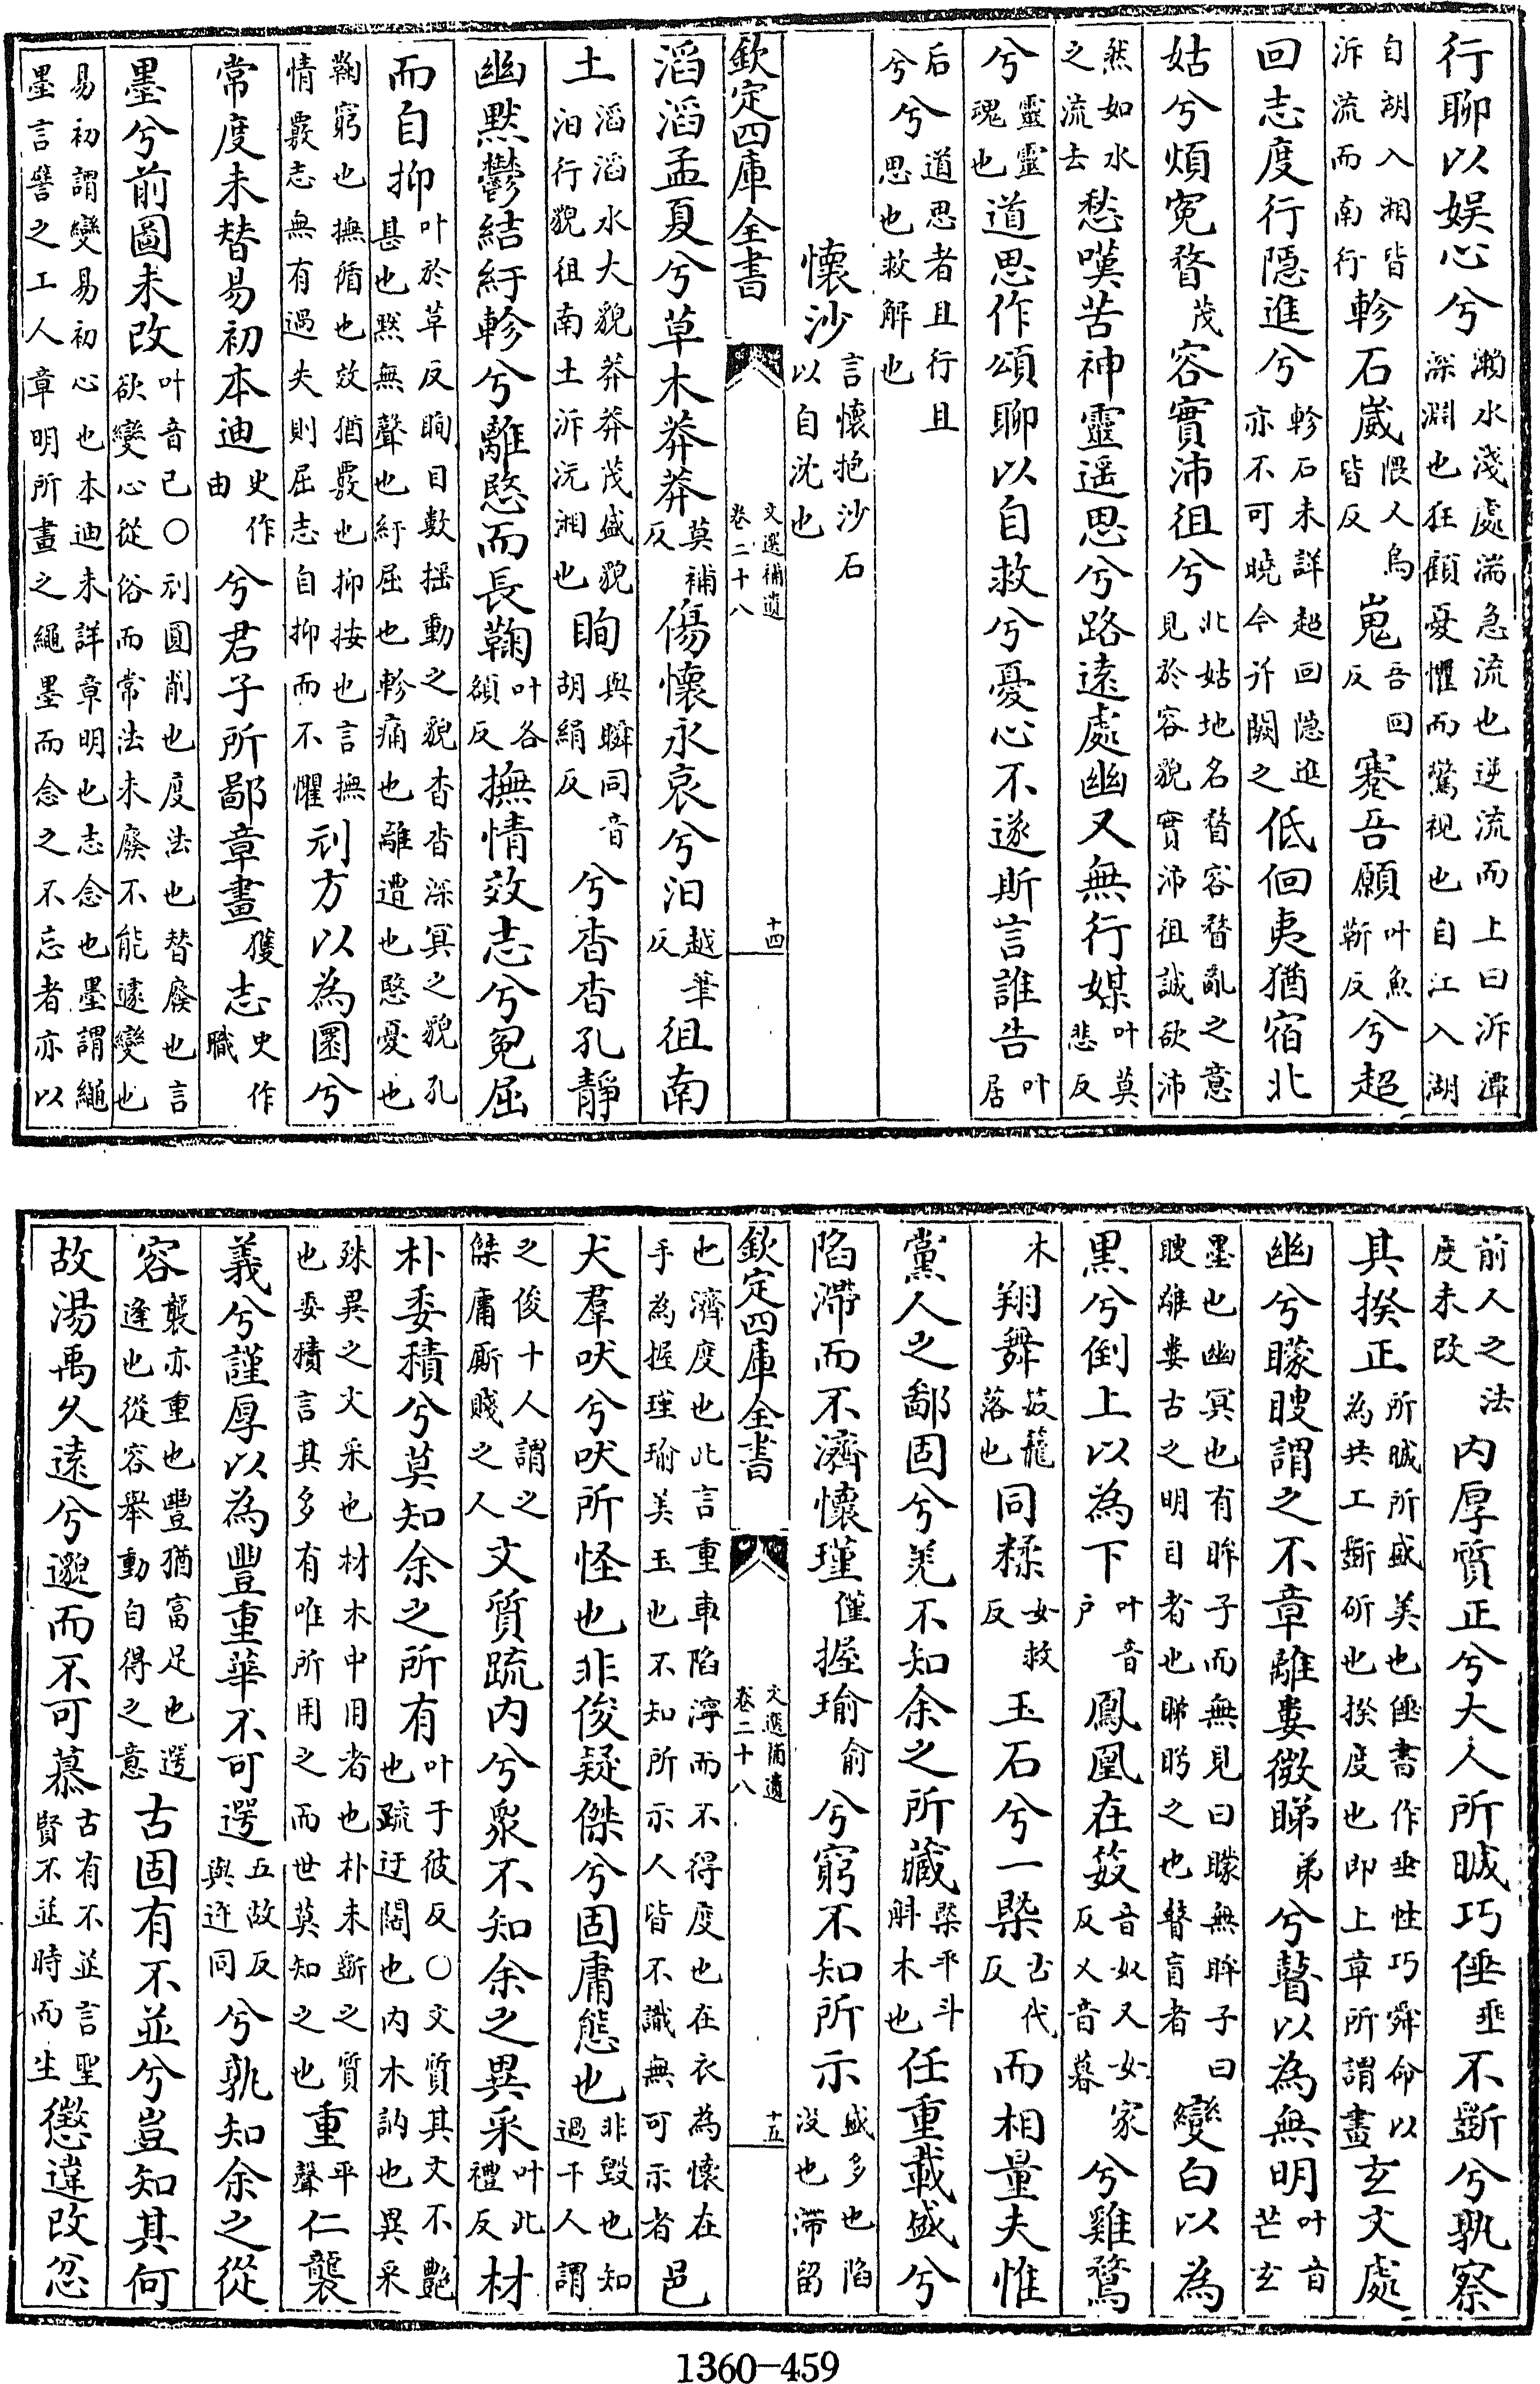 行聊以娛心兮瀨水淺處湍急流也逆流而上曰泝潭深淵也狂顧憂懼而驚視也自江入湖
自湖入湘皆泝流而南行軫石崴隈又烏皆反嵬吾回反蹇吾願叶魚靳反兮超
回志度行隱進兮軫石未詳超回隱進亦不可曉今并闕之低佪夷猶宿北
姑兮煩寃瞀茂容實沛徂兮北姑地名瞀容瞀亂之意見於容貌實沛徂誠欲沛
然如水之流去愁嘆苦神靈遥思兮路遠處幽又無行媒叶莫悲反
兮靈靈魂也道思作頌聊以自救兮憂心不遂斯言誰告叶居
后反兮道思者且行且思也救解也
懷沙言懷抱沙石以自沈也
欽定四庫全書 文選補遺卷二十八 十四
滔滔孟夏兮草木莽莽莫補反傷懷永哀兮汩越筆反徂南
土滔滔水大貌莽莽茂盛貌汩行貌徂南土泝沅湘也眴與瞬同音胡絹反兮杳杳孔靜
幽默鬱結紆軫兮離愍而長鞠叶各額反撫情效志兮寃屈
而自抑叶於草反眴目數揺動之貌杳杳深冥之貌孔甚也默無聲也紆屈也軫痛也離遭也愍憂也
鞠窮也撫循也效猶覈也抑按也言撫情覈志無有過失則屈志自抑而不懼刓方以為圜兮
常度未替易初本迪史作由兮君子所鄙章畫獲志史作職
墨兮前圖未改叶音已○刓圓削也度法也替廢也言欲變心從俗而常法未廢不能遽變也
易初謂變易初心也本迪未詳章明也志念也墨謂繩墨言譬之工人章明所畫之繩墨而念之不忘者亦以
前人之法度未改内厚質正兮大人所晠巧倕垂不斵兮孰察
其揆正所晠所盛美也倕書作垂性巧舜命以為共工斵斫也揆度也即上章所謂畫玄文處
幽兮矇瞍謂之不章離婁微睇弟兮瞽以為無明叶音芒玄
墨也幽冥也有眸子而無見曰矇無眸子曰瞍離婁古之明目者也睇眄之也瞽盲者變白以為
黑兮倒上以為下叶音戶鳳凰在笯音奴又女家反又音暮兮雞鶩
翔舞笯籠落也同糅女救反玉石兮一槩古代反而相量夫惟
黨人之鄙固兮羌不知余之所藏槩平斗斛木也任重載盛兮
陷滯而不濟懷瑾僅握瑜俞兮窮不知所示盛多也陷没也滯留
欽定四庫全書 文選補遺卷二十八 十五
也濟度也此言重車陷濘而不得度也在衣為懷在手為握瑾瑜美玉也不知所示人皆不識無可示者邑
犬羣吠兮吠所怪也非俊疑傑兮固庸態也非毀也知過千人謂
之俊十人謂之傑庸厮賤之人文質疏内兮衆不知余之異采叶此禮反材
朴委積兮莫知余之所有叶于彼反○文質其文不艶也疏迂闊也内木訥也異采
殊異之文采也材木中用者也朴未斵之質也委積言其多有唯所用之而世莫知之也重平聲仁襲
義兮謹厚以為豐重華不可遌五故反與迕同兮孰知余之從
容襲亦重也豐猶富足也遌逢也從容舉動自得之意古固有不並兮豈知其何
故湯禹久遠兮邈而不可慕古有不並言聖賢不並時而生懲違改忿
1360-459